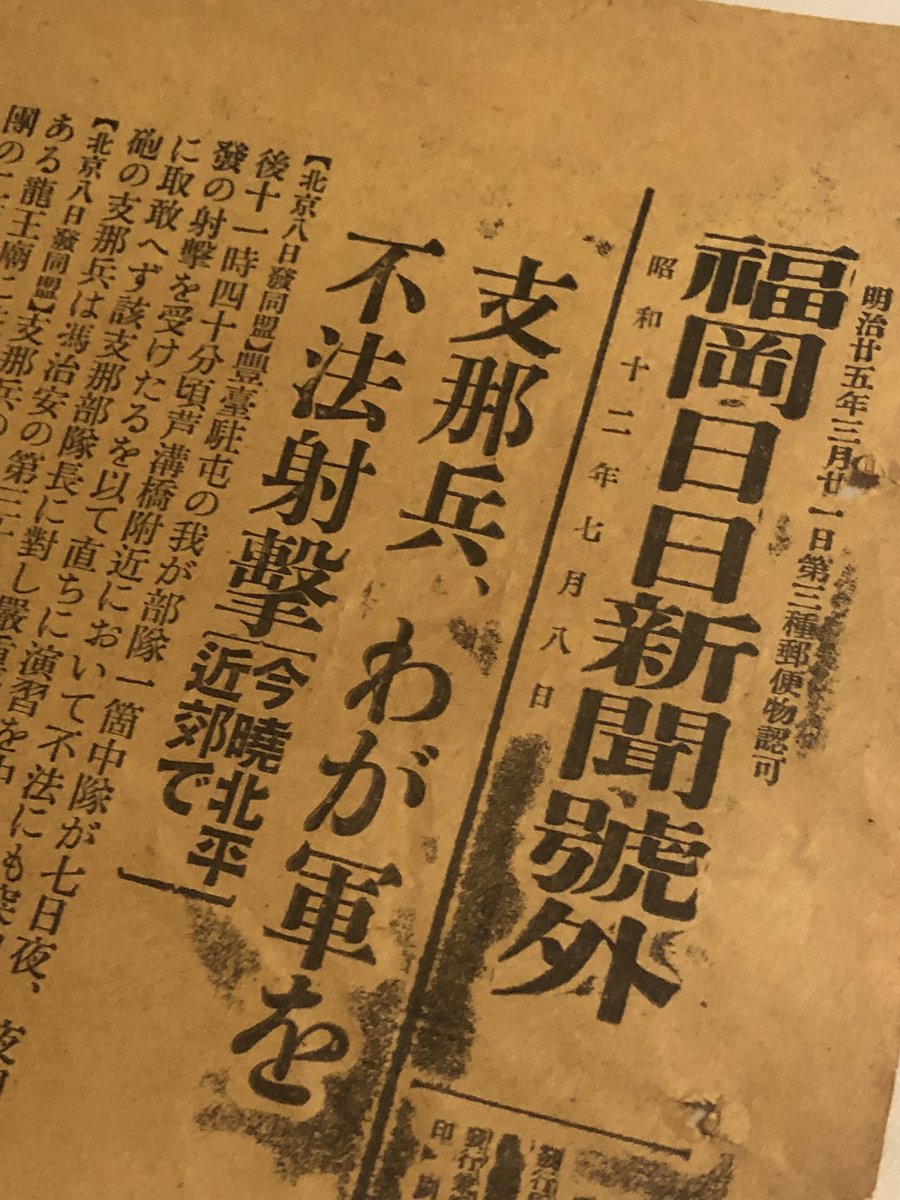 明治廿五年三月廿一日第三種郵便物認可
福岡日日新聞號外
昭和十二年七月八日
支那兵、わが軍を
不法射擊
[今曉北平
近郊で]
【北京八日發同盟】豐臺駐屯の我が部隊一箇中隊が七日夜、
後十一時四十分頃芦溝橋附近において不法にも突
發の射擊を受けたるを以て直ちに演習を中
に取敢へず該支那部隊長に對し嚴重
砲の支那兵は馮治安の第三十
【北京八日發同盟】支那兵の
ある龍王廟に
團の二
發行
發行
印刷